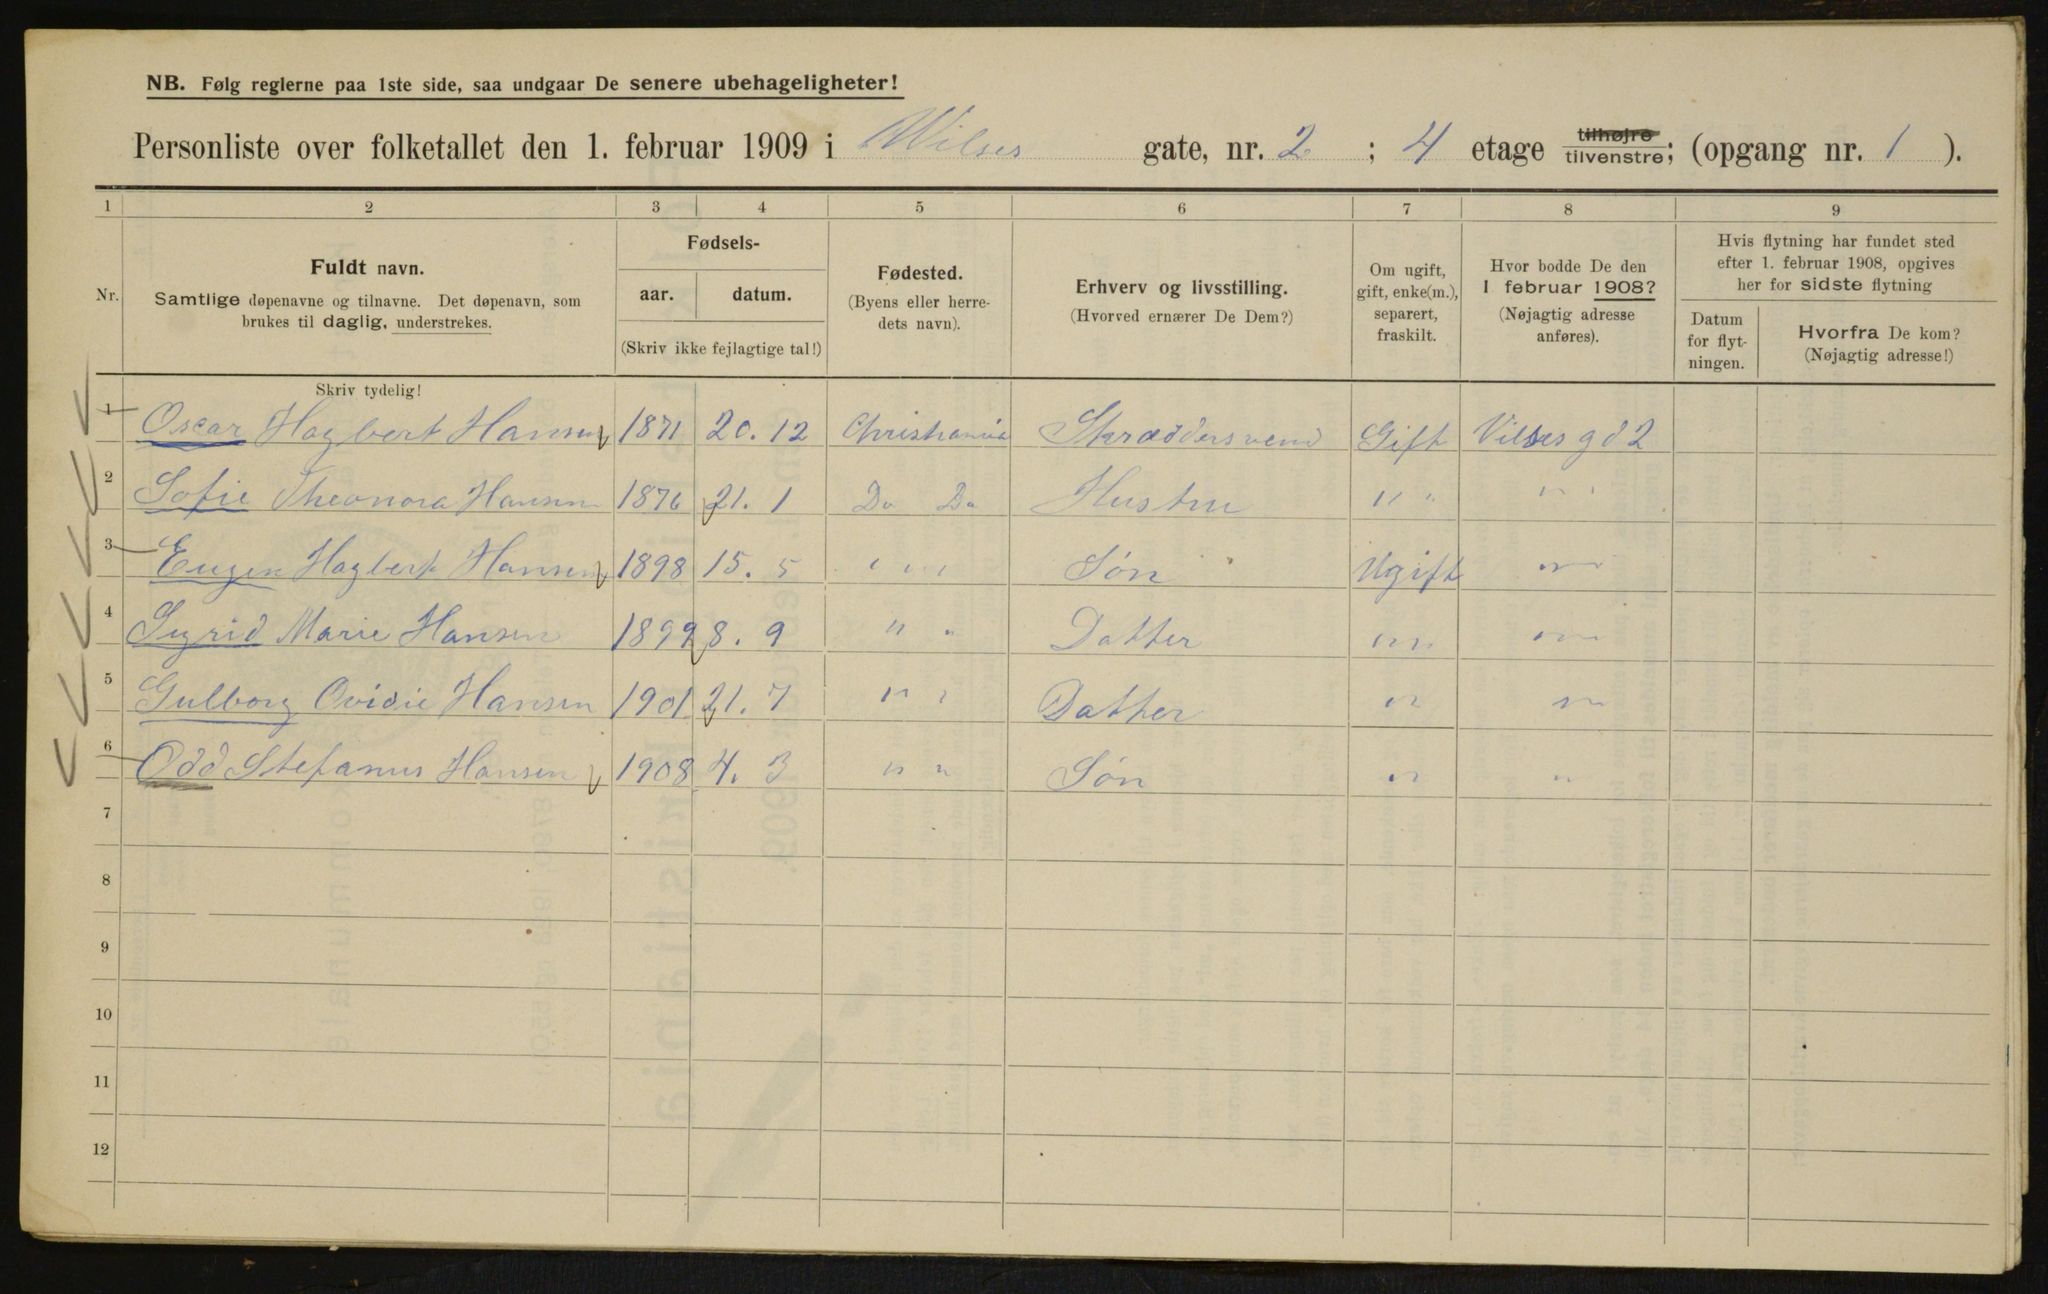 NB. Følg reglerne paa 1ste side, saa undgaar De senere ubehageligheter!
Personliste over folketallet den 1. februar 1909 i Wilses gate, nr. 2 ; 4 etage tilhøjre tilvenstre; (opgang nr. 1 ).
1 2 3 4 5 6 7 8 9
Nr.
Fuldt navn.
Samtlige døpenavne og tilnavne. Det døpenavn, som
brukes til daglig, understrekes.
Fødsels-
aar. datum.
(Skriv ikke fejlagtige tal!)
Fødested.
(Byens eller herre-
dets navn).
Erhverv og livsstilling.
(Hvorved ernærer De Dem?)
Om ugift,
gift, enke(m.),
separert,
fraskilt.
Hvor bodde De den
1. februar 1908?
(Nøjagtig adresse
anføres).
Hvis flytning har fundet sted
efter 1. februar 1908, opgives
her for sidste flytning
Datum
for flyt-
ningen.
Hvorfra De kom?
(Nøjagtig adresse!)
Skriv tydelig!
1 Oscar Hagbert Hansen 1871 20. 12 Christiania Skræddersvend Gift Vilses gd 2
2 Sofie Theonora Hansen 1876 21. 1 Do Do Hustru " " " "
3 Eugen Hagbert Hansen 1898 15. 5 " " " Søn Ugift " "
4 Sigrid Marie Hansen 1899 8. 9 " " Datter " " " "
5 Gulborg Ovidie Hansen 1901 21. 7 " " Datter " "
6 Odd Stefanus Hansen 1908 4. 3 " " Søn " "
7
8
9
10
11
12